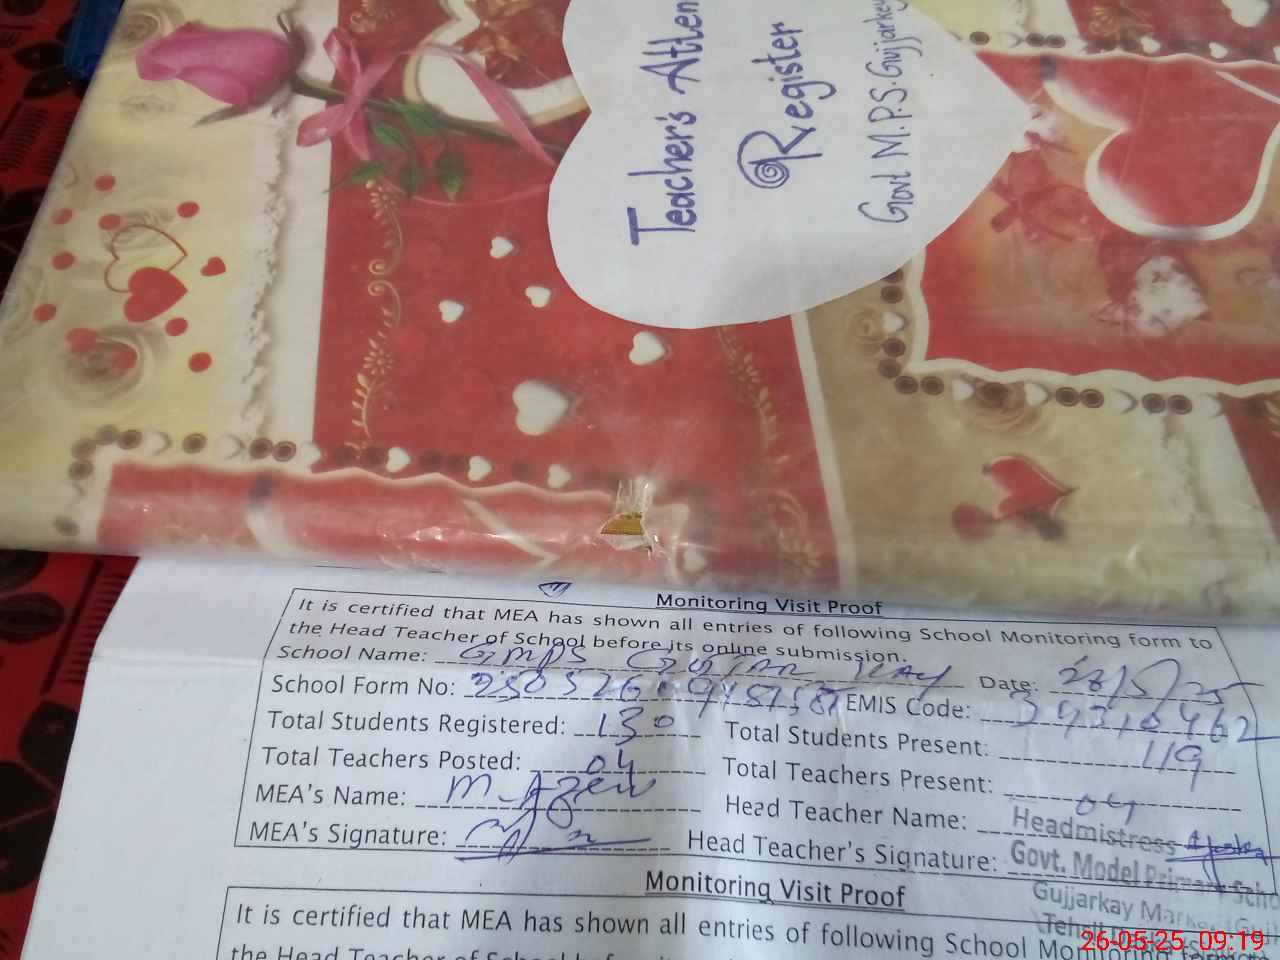 Teacher's Atten
Register
Govt M.P.S. Gujjarkey
Monitoring Visit Proof
It is certified that MEA has shown all entries of following School Monitoring form to
the Head Teacher of School before its online submission.
School Name: GMPS Gujjar Kay Date:
School Form No: EMIS Code:
Total Students Registered: 130 Total Students Present: 119
Total Teachers Posted: 04 Total Teachers Present: 04
MEA's Name: Head Teacher Name: Headmistress
MEA's Signature: Head Teacher's Signature: Govt. Model Primary Scho
Gujjarkay
Monitoring Visit Proof
It is certified that MEA has shown all entries of following School
the Head Teacher of School
26-05-25 09:19